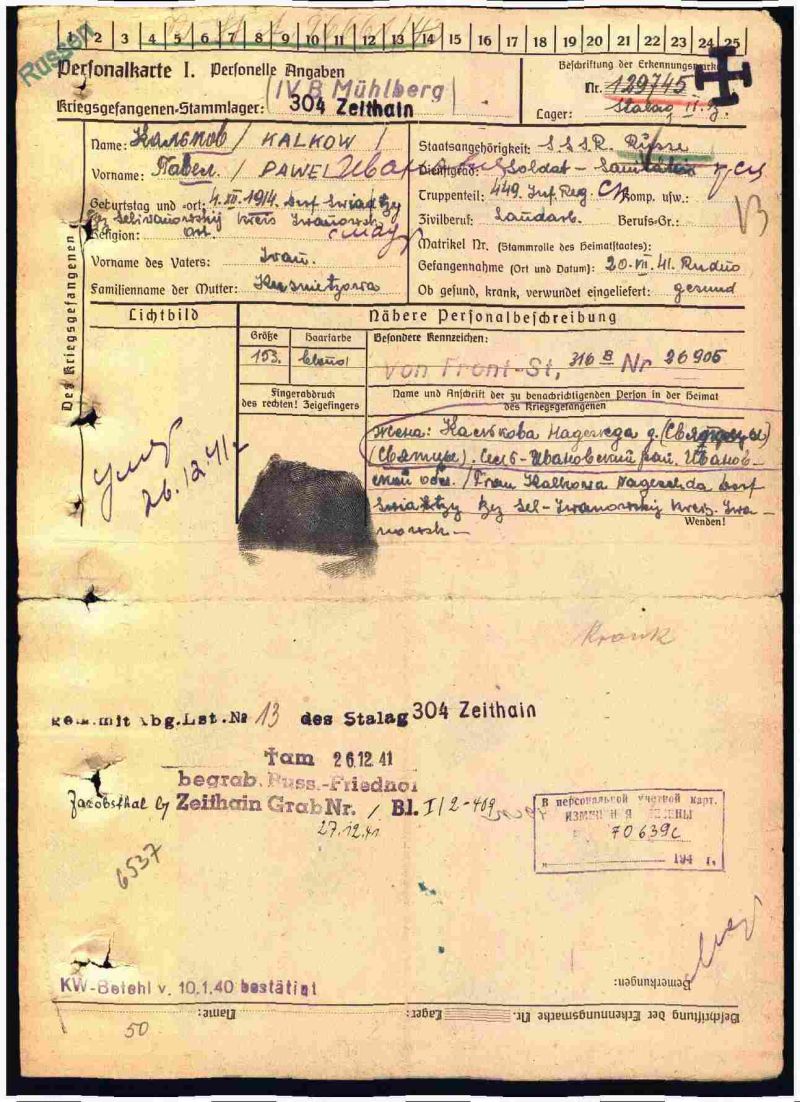 Russen
1 2 3 4 5 6 7 8 9 10 11 12 13 14 15 16 17 18 19 20 21 22 23 24 25
Personalkarte I. Personelle Angaben
IV B Mühlberg
Kriegsgefangenen-Stammlager: 304 Zeithain
Beschriftung der Erkennungsmarke
Nr. 129745
Lager: Stalag
Des Kriegsgefangenen
Name: Кальков / KALKOW
Vorname: Павел / PAWEL Иванович
Geburtstag und -ort: 4. XII. 1914. Dorf Swiatzy
Bez Seliwanowskij Kreis Iwanowsk
Religion: Ort.
Vorname des Vaters: Iwan.
Familienname der Mutter: Kusnietzowa
Staatsangehörigkeit: S.S.S.R. Russe
Dienstgrad: Soldat - Sanitäter
Truppenteil: 449 Inf. Reg. Komp. usw.:
Zivilberuf: Landarb. Berufs-Gr.:
Matrikel Nr. (Stammrolle des Heimatstaates):
Gefangennahme (Ort und Datum): 20. VII. 41. Rudno
Ob gesund, krank, verwundet eingeliefert: gesund
Lichtbild
Nähere Personalbeschreibung
Größe
Haarfarbe
Besondere Kennzeichen:
153. blond
Von Front-St, 316 B Nr 26905
Fingerabdruck
des rechten! Zeigefingers
Name und Anschrift der zu benachrichtigenden Person in der Heimat
des Kriegsgefangenen
Жена: Калькова Надежда д.
(Святцы). Сель-Ивановский рай. Иванов-
ской обл. / Frau Kalkowa Nageschda Dorf
Swiaktzy Bez Sel-Iwanowskij Kreis. Iwa-
nowsk -
Wenden!
Умер
26.12.41 г
Krank
gem. mit Abg.Lst.№ 13 des Stalag 304 Zeithain
†am 26.12.41
begrab. Russ.-Friedhof
Jacobsthal by Zeithain Grab Nr. / Bl. I/2-409
27.12.41
В персональной учетной карт.
ИЗМЕНЕНИЯ
70639с
194 г.
6537
KW-Befehl v. 10.1.40 bestätigt
50
Bemerkungen:
Beschriftung der Erkennungsmarke Nr. Lager: Name: